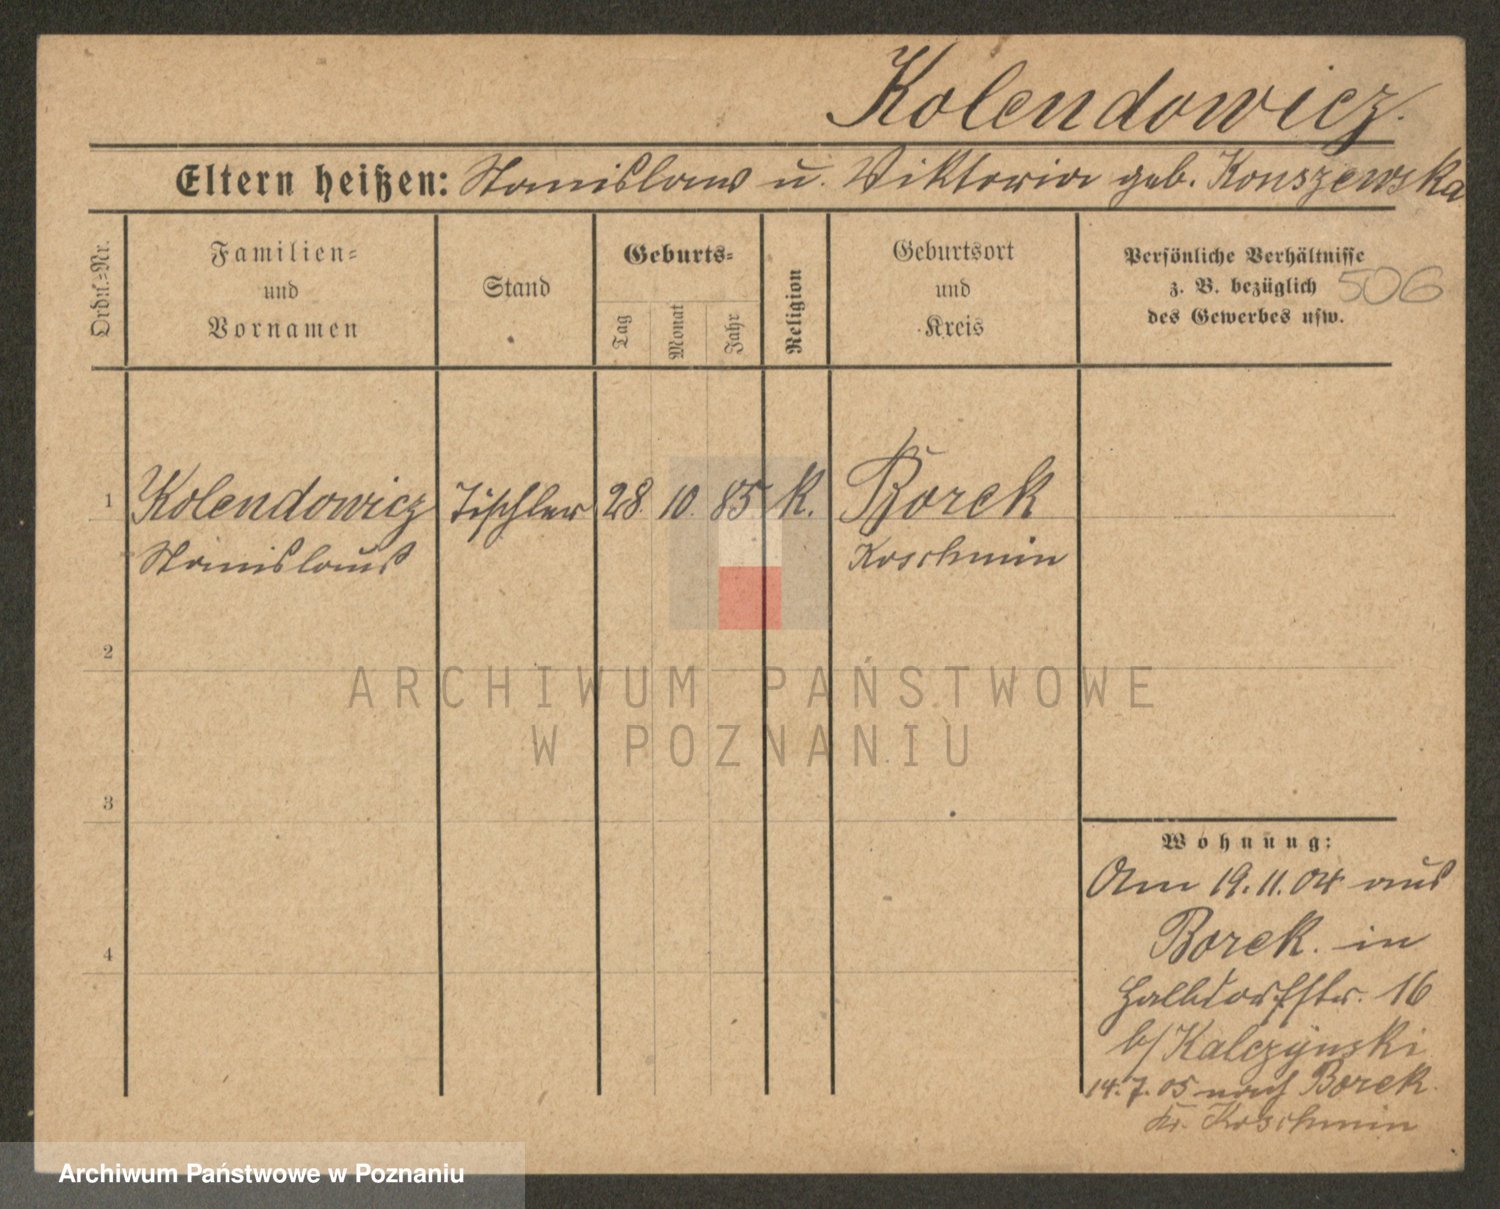 Kolendowicz.
Eltern heißen: Stanislaus u. Viktoria geb. Konszewska
Ordn.=Nr.
Familien=
und
Vornamen
Stand
Geburts=
Tag
Monat
Jahr
Religion
Geburtsort
und
Kreis
Persönliche Verhältnisse
z. B. bezüglich
des Gewerbes usw.
506
1 Kolendowicz Tischler 28. 10. 85 K. Borek
Stanislaus Koschmin
2
ARCHIWUM PAŃSTWOWE
W POZNANIU
3
Wohnung:
Am 19.11.04 aus
Borek. in
Halbdorfstr. 16
b/ Kalczynski
4
14.7.05 nach Borek.
Kr. Koschmin
Archiwum Państwowe w Poznaniu